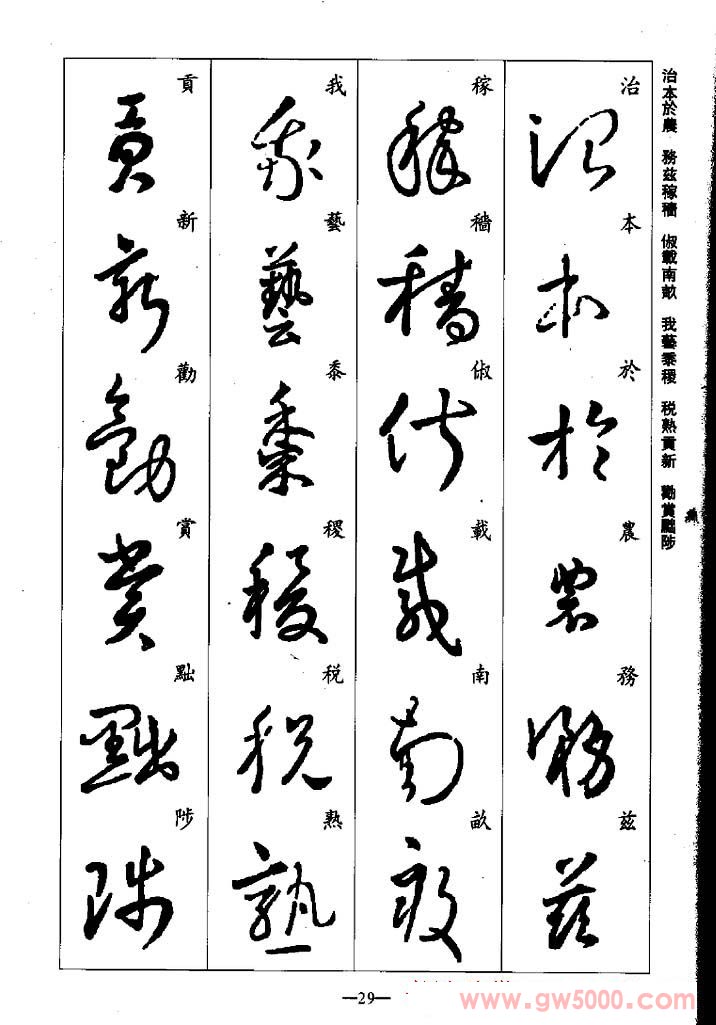 治本於農 務茲稼穡 俶載南畝 我藝黍稷 税熟貢新 勸賞黜陟
治本於農務茲
稼穡俶載南畝
我藝黍稷税熟
貢新勸賞黜陟
—29—
www.gw5000.com